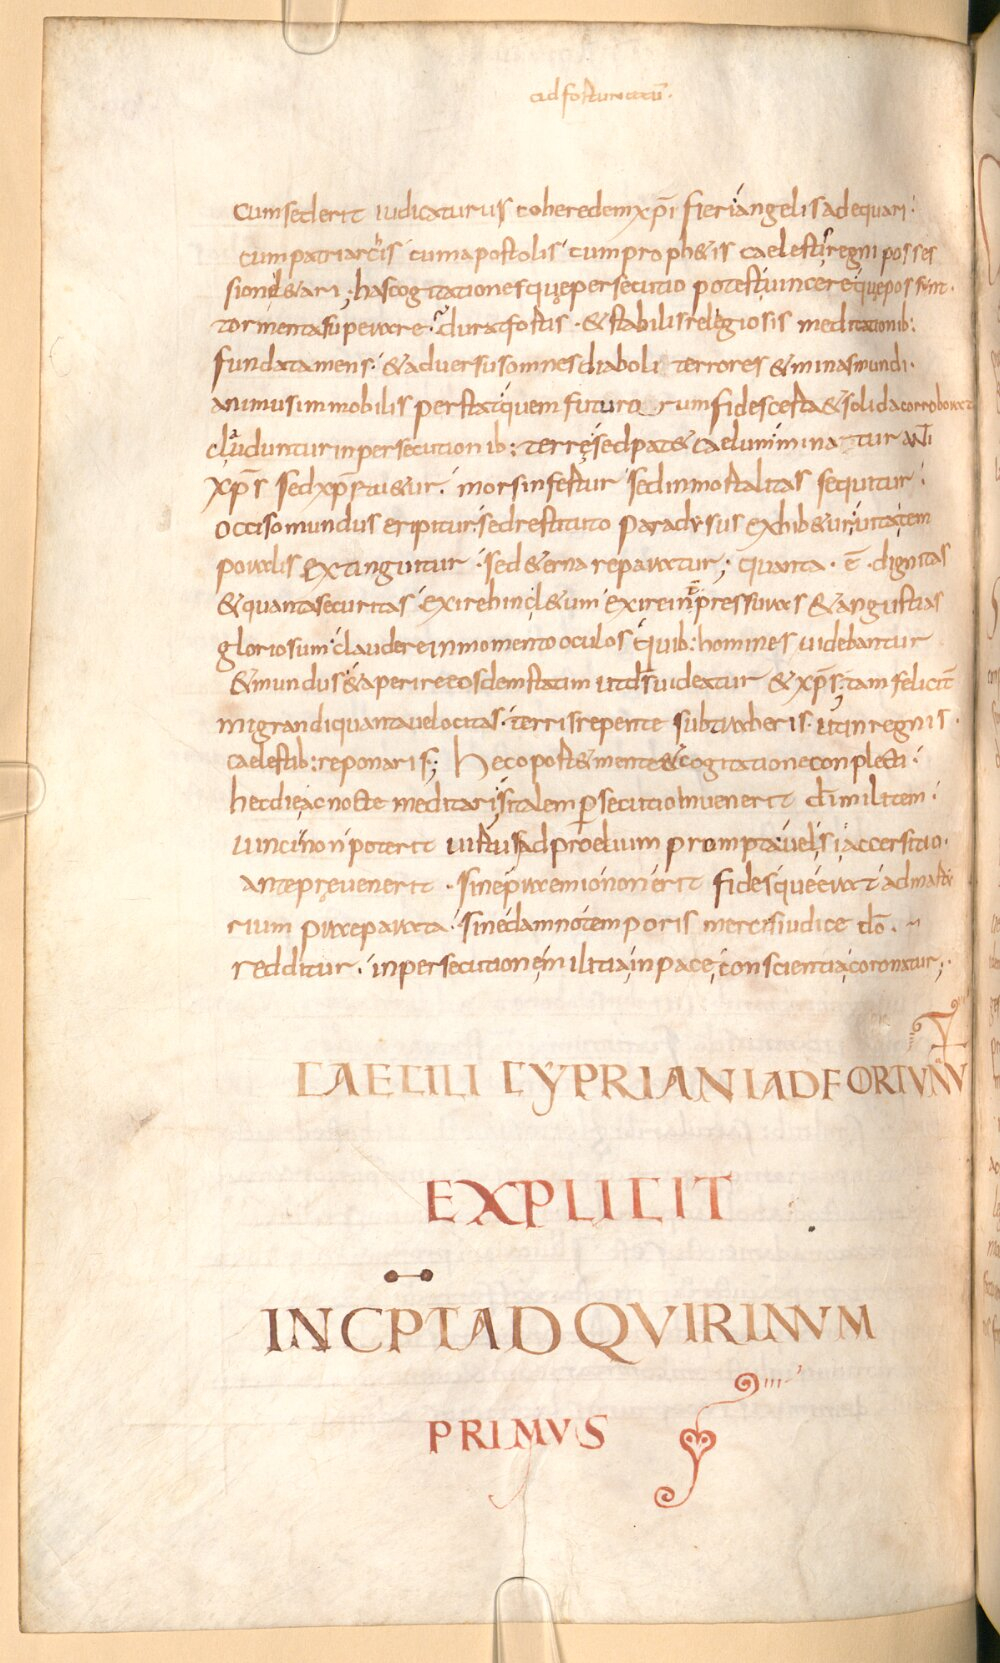 ad fortunatū.
cum sederit iudicaturus coheredem xp̄i fieri angelis adequari.
cum patriarchis cum apostolis cum proph&is caelestis regni posses
sione l&ari; has cogitationes quę persecutio potest uincere quę possunt.
tormenta superare. durat fortis. & stabilis religiosis meditationib:
fundata mens. & aduersus omnes diaboli terrores & minas mundi.
animus immobilis perstat quem futurorum fides certa & solida corroborat
cluduntur in persecutionib: terrę sed pat& caelum minatur anti
xp̄s sed xp̄s tu&ur. mors infertur sed inmortalitas sequitur.
occiso mundus eripitur sed restituto paradysus exhib&ur uita tem
poralis extinguitur. sed &erna reparatur; quanta. ē. dignitas
& quanta securitas exire hinc l&um exire in pressuras & angustias
gloriosum claudere in momento oculos quib: homines uidebantur
& mundus & aperire eosdem statim ut ds̄ uideatur & xp̄s; tam felicit̄
migrandi quanta uelocitas. terris repente subtraheris. ut in regnis.
caelestib: reponaris; Hec oport& mente & cogitatione conplecti.
hec die ac nocte meditari si talem persecutio inuenerit dī militem.
uinci non poterit uirtus ad proelium prompta uel si accersitio.
ante pręuenerit. sine praemio non erit fides quę erat ad marty
rium praeparata. sine damno temporis merces iudice dō.
redditur. in persecutione militia in pace conscientia coronatur;.
CAECILI CYPRIANI AD FORTVNATV
EXPLICIT
INCPT AD QVIRINVM
PRIMVS